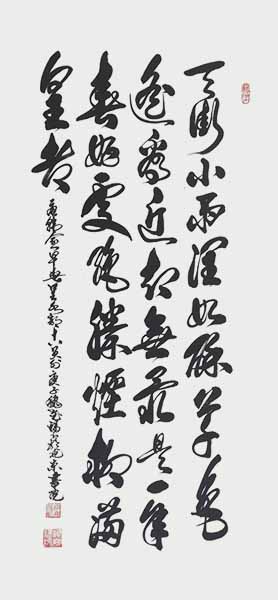 天街小雨潤如酥草色
遙看近却無最是一年
春好處絕勝煙柳滿
皇都
韓愈早春呈水部十八員外庚子穐